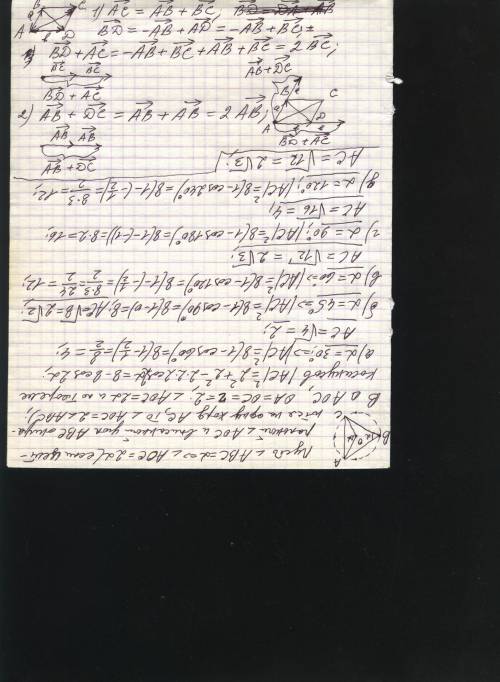 1) AC = AB + BC,
BD = -AB + AD = -AB + BC;
BD + AC = -AB + BC + AB + BC = 2BC;
AC BC
BD + AC
AB + DC
2) AB + DC = AB + AB = 2AB;
AB AB
AB + DC
BD + AC
Пусть ∠ABC = α => ∠AOC = 2α (если цент-
ральный ∠AOC и вписанный угол ABC опира-
ются на одну хорду AC, то ∠AOC = 2∠ABC),
В ΔAOC, OA = OC = r = 2; ∠AOC = 2α и по теореме
косинусов |AC|² = 2² + 2² - 2·2·2·cos2α = 8 - 8cos2α,
а) α = 30°; => |AC|² = 8(1 - cos60°) = 8(1 - 1/2) = 8/2 = 4;
AC = √4 = 2;
б) α = 45° => |AC|² = 8(1 - cos90°) = 8(1 - 0) = 8; AC = √8 = 2√2;
в) α = 60° => |AC|² = 8(1 - cos120°) = 8(1 - (-1/2)) = 8·3/2 = 24/2 = 12;
AC = √12 = 2√3;
г) α = 90°; |AC|² = 8(1 - cos180°) = 8(1 - (-1)) = 8·2 = 16;
AC = √16 = 4;
д) α = 120°; |AC|² = 8(1 - cos240°) = 8(1 - (-1/2)) = 8·3/2 = 12;
AC = √12 = 2√3;